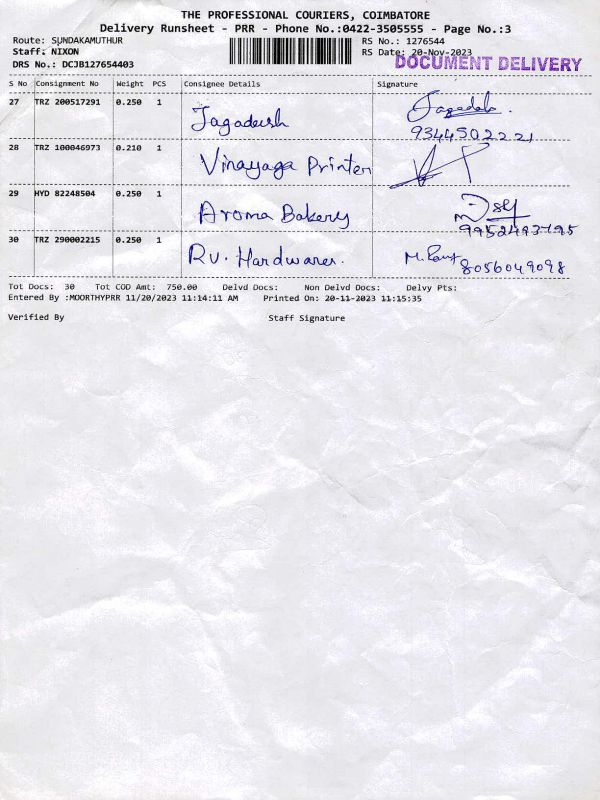 THE PROFESSIONAL COURIERS, COIMBATORE
Delivery Runsheet - PRR - Phone No.:0422-3505555 - Page No.:3
Route: SUNDAKAMUTHUR RS No.: 1276544
Staff: NIXON RS Date: 20-Nov-2023
DRS No.: DCJB127654403 DOCUMENT DELIVERY
S No Consignment No Weight PCS Consignee Details Signature
27 TRZ 200517291 0.250 1 Jagadeesh
9344502221
28 TRZ 100046973 0.210 1 Vinayaga Printer
29 HYD 82248504 0.250 1 Aroma Bakery
30 TRZ 290002215 0.250 1 RV. Hardwares.
8056049098
Tot Docs: 30 Tot COD Amt: 750.00 Delvd Docs: Non Delvd Docs: Delvy Pts:
Entered By :MOORTHYPRR 11/20/2023 11:14:11 AM Printed On: 20-11-2023 11:15:35
Verified By Staff Signature